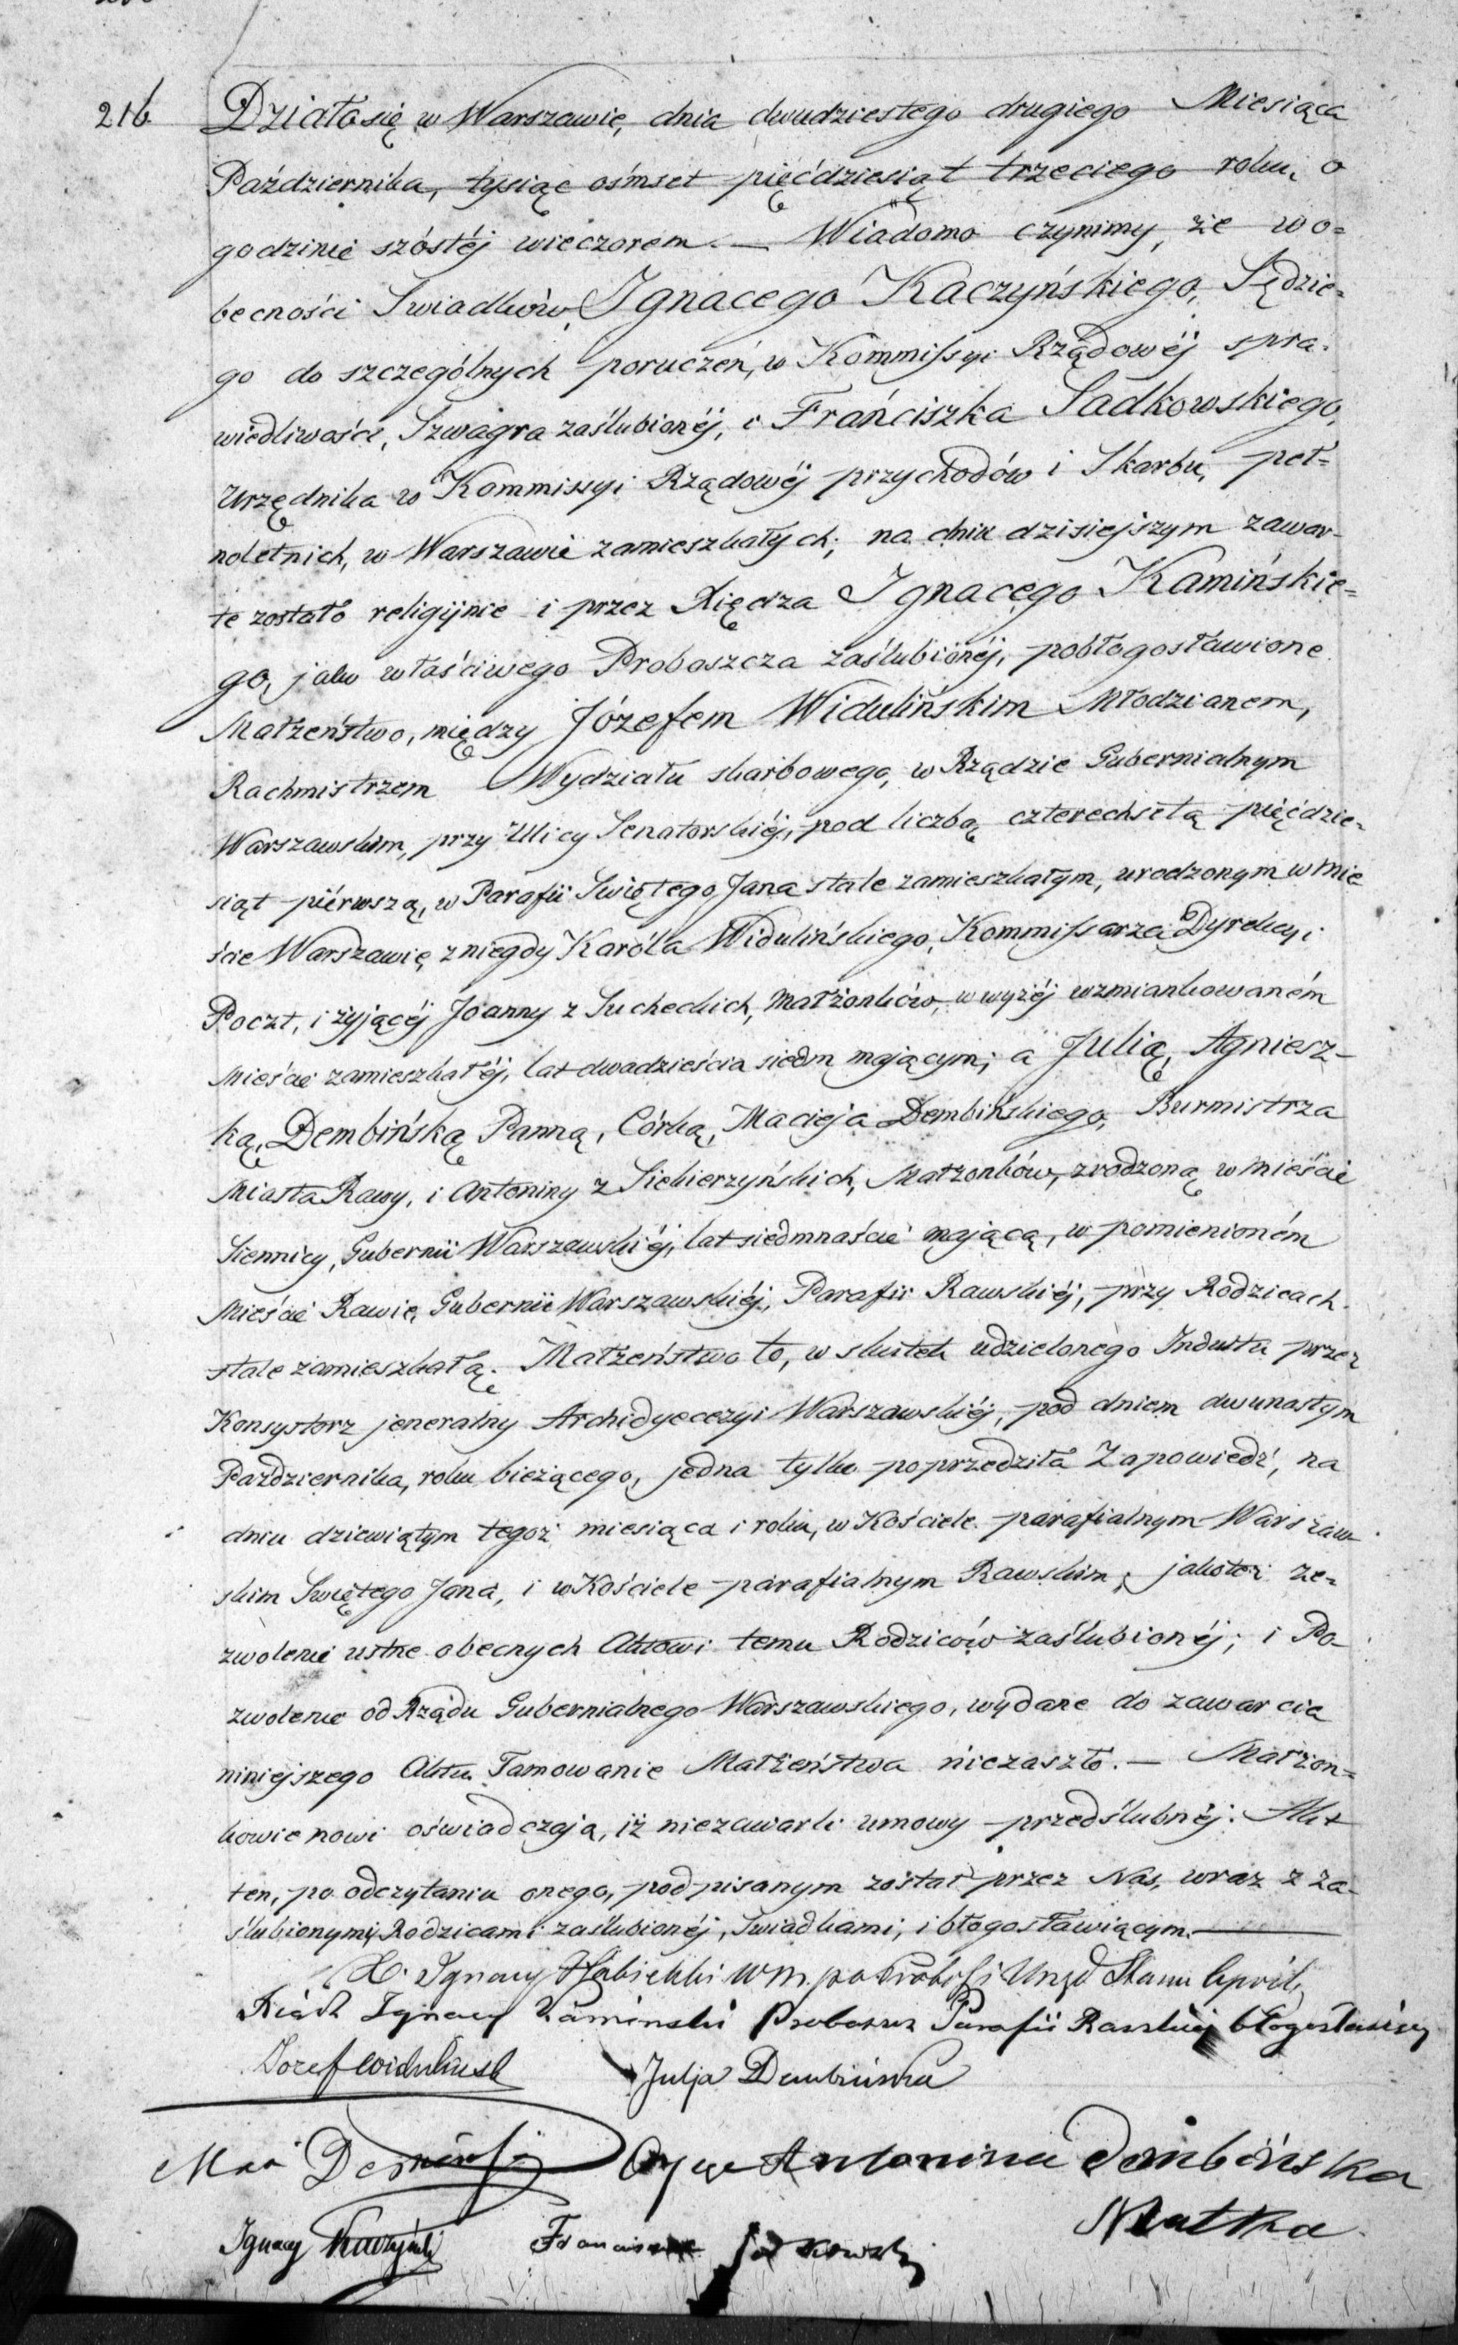 216
Działo się w Warszawie, dnia dwudziestego drugiego Miesiąca
Października, tysiąc ośmset pięćdziesiąt trzeciego roku, o
godzinie szóstéj wieczorem. — Wiadomo czynimy, że w o=
becności Swiadków, Ignacego Kaczyńskiego, Sędzie=
go do szczególnych poruczeń, w Kommissyi Rządowéj spra=
wiedliwości, Szwagra zaślubionéj, i Frańciszka Sadkowskiego,
Urzędnika w Kommissyi Rządowéj przychodów i Skarbu, peł=
noletnich, w Warszawie zamieszkałych; na dniu dzisiejszym zawar-
te zostało religijnie i przez Xiędza Ignacego Kamińskie=
go, jako właściwego Proboszcza zaślubionéj, pobłogosławione
Małżeństwo, między Józefem Widulińskim Młodzianem,
Rachmistrzem Wydziału skarbowego, w Rządzie Gubernialnym
Warszawskim, przy Ulicy Senatorskiéj, pod liczbą czterechsetą pięćdzie-
siąt piérwszą, w Parafii Swiętego Jana stale zamieszkałym, urodzonym w mie
ście Warszawie, z niegdy Karóla Widulińskiego, Kommissarza Dyrekcyi
Poczt, i żyjącéj Joanny z Sucheckich, Małżonków, w wyżéj wzmiankowaném
Mieście zamieszkałéj, lat dwadzieścia siedm mającym; a Julią, Agniesz-
ką, Dembińską Panną, Córką, Macieja Dembińskiego, Burmistrza
Miasta Rawy, i Antoniny z Siekierzyńskich, Małżonków, zrodzoną w mieście
Siennicy, Gubernii Warszawskiéj, lat siedmnaście mającą, w pomienioném
Mieście Rawie, Gubernii Warszawskiéj, Parafii Rawskiéj, przy Rodzicach
stale zamieszkałą. Małżeństwo to, w skutek udzielonego Indultu przez
Konsystorz jeneralny Archidyecezyi Warszawskiéj, pod dniem dwunastym
Października, roku bieżącego, jedna tylko poprzedziła Zapowiedź, na
dniu dziewiątym tegoż miesiąca i roku, w Kościele parafialnym Warszaw-
skim Swiętego Jana, i w Kościele parafialnym Rawskim; jakoteż ze=
zwolenie ustne obecnych Aktowi temu Rodziców zaślubionéj; i Po-
zwolenie od Rządu Gubernialnego Warszawskiego, wydane do zawarcia
niniejszego Aktu. Tamowanie Małżeństwa niezaszło. — Małżon=
kowie nowi oświadczają, iż niezawarli umowy przedślubnéj. Akt
ten, po odczytaniu onego, podpisanym został przez Nas, wraz z za-
ślubionymi, Rodzicami zaślubionéj, Swiadkami, i błogosławiącym.
X. Ignacy Urzęd Stanu Cywil.
Xiądz Ignacy Kamiński Proboszcz Parafii Rawskiéj błogosławiący
Józef Widulinski Julja Dembińska
Dembiński Oyciec Antonina Dembińska
Matka
Ignacy Kaczyński Franciszek Sadkowski